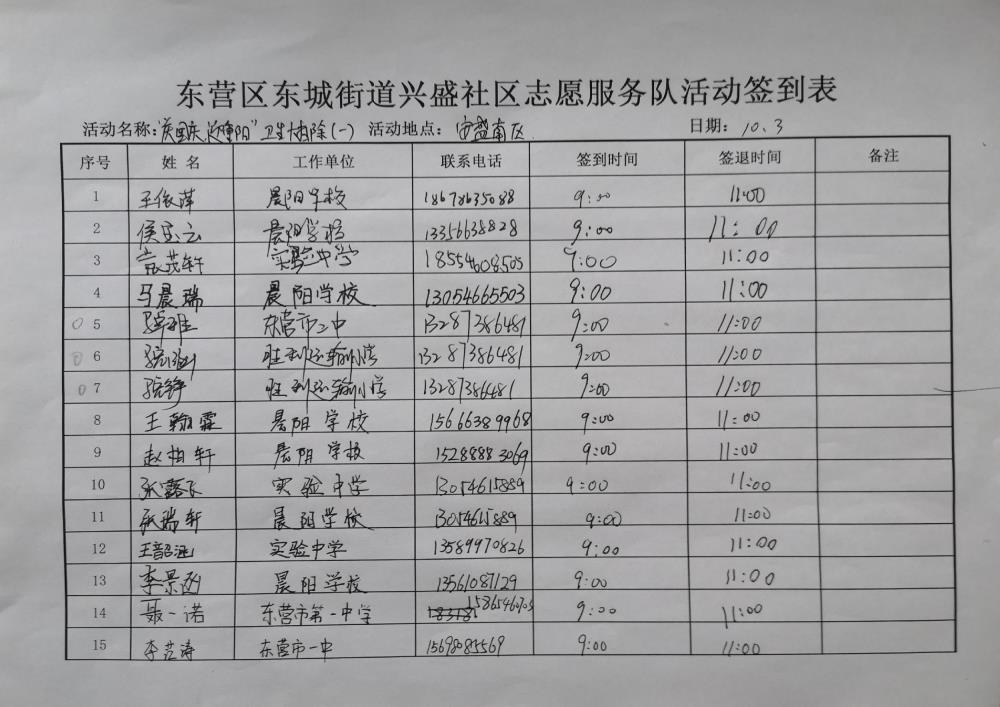 东营区东城街道兴盛社区志愿服务队活动签到表
活动名称: 卫生大扫除(一) 活动地点: 安盛南区 日期: 10.3
序号 姓名 工作单位 联系电话 签到时间 签退时间 备注
1 王依萍 晨阳学校 18678635088 9:00 11:00
2 侯宝云 晨阳学校 13356638828 9:00 11:00
3 袁茂轩 实验中学 18554608505 9:00 11:00
4 马晨瑞 晨阳学校 13054665503 9:00 11:00
5 东营市二中 13287386481 9:00 11:00
6 胜利运输小学 13287386481 9:00 11:00
7 胜利运输小学 13287386481 9:00 11:00
8 王翰霖 晨阳学校 15666389968 9:00 11:00
9 赵柏轩 晨阳学校 15288883069 9:00 11:00
10 实验中学 13054615889 9:00 11:00
11 张瑞轩 晨阳学校 13054615889 9:00 11:00
12 王韶涵 实验中学 13589970826 9:00 11:00
13 李景函 晨阳学校 13561087129 9:00 11:00
14 聂一诺 东营市第一中学 9:00 11:00
15 东营市一中 15698085569 9:00 11:00